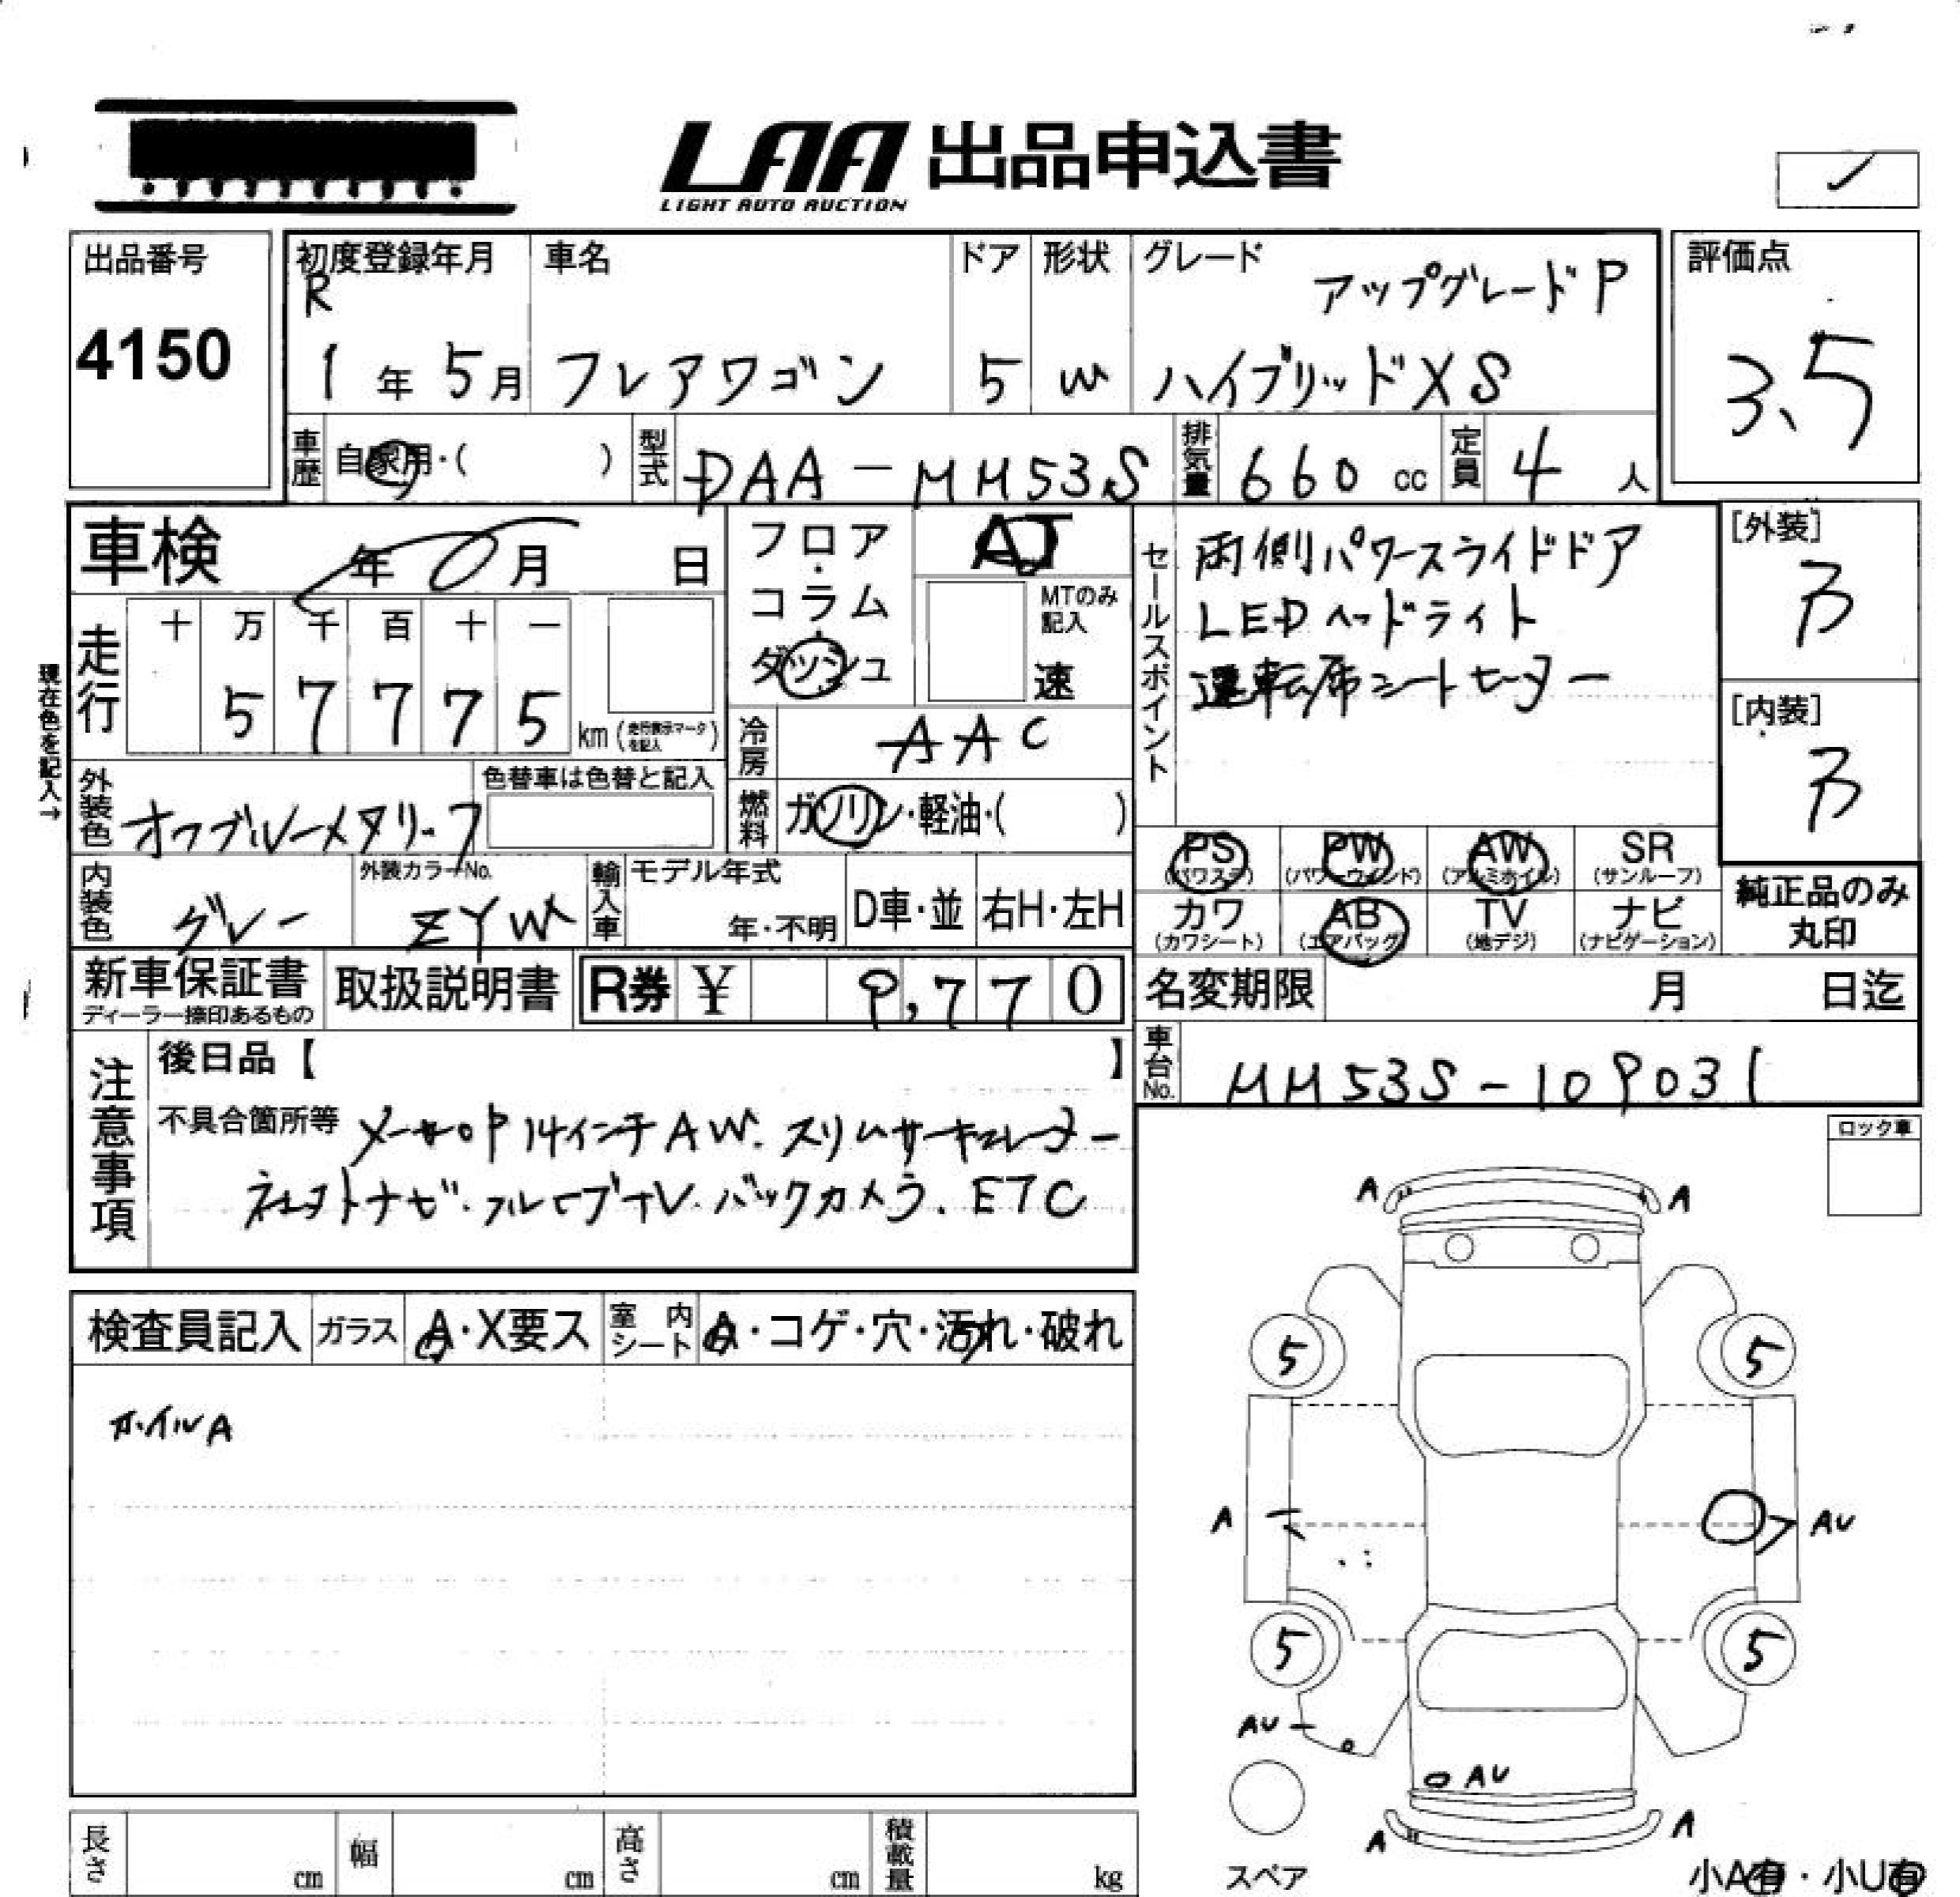 LAA 出品申込書
LIGHT AUTO AUCTION
出品番号
4150
初度登録年月
R
1年 5月
車名
フレアワゴン
ドア
5
形状
W
グレード
アップグレードP
ハイブリッドXS
評価点
3.5
車歴 自家用・( )
型式 DAA-MM53S
排気量 660 cc
定員 4 人
車検 年 月 日
フロア・コラム・ダッシュ
AT
MTのみ記入
速
セールスポイント
両側パワースライドドア
LEDヘッドライト
運転席シートヒーター
[外装]
B
[内装]
B
現在色を記入→
走行 十 万 千 百 十 一
5 7 7 7 5 km (走行表示マークを記入)
冷房 AAC
外装色
色替車は色替と記入
燃料 ガソリン・軽油・( )
内装色 グレー
外装カラーNo.
ZYW
輸入車 モデル年式
年・不明
D車・並
右H・左H
PS (パワステ)
PW (パワーウィンド)
AW (アルミホイル)
SR (サンルーフ)
カワ (カワシート)
AB (エアバッグ)
TV (地デジ)
ナビ (ナビゲーション)
純正品のみ
丸印
新車保証書
ディーラー捺印あるもの
取扱説明書
R券 ¥ 9,770
名変期限 月 日迄
車台No. MM53S-109031
注意事項
後日品【 】
不具合箇所等 メーカーOP14インチAW.スリムサーキュレーター
ナビ.フルセグTV.バックカメラ.ETC
ロック車
検査員記入
ガラス A・X要ス
室内シート A・コゲ・穴・汚れ・破れ
ホイルA
A A
5 5
A AU
5 5
AU
AU
A A
スペア
小A有・小U有
長さ cm
幅 cm
高さ cm
積載量 kg